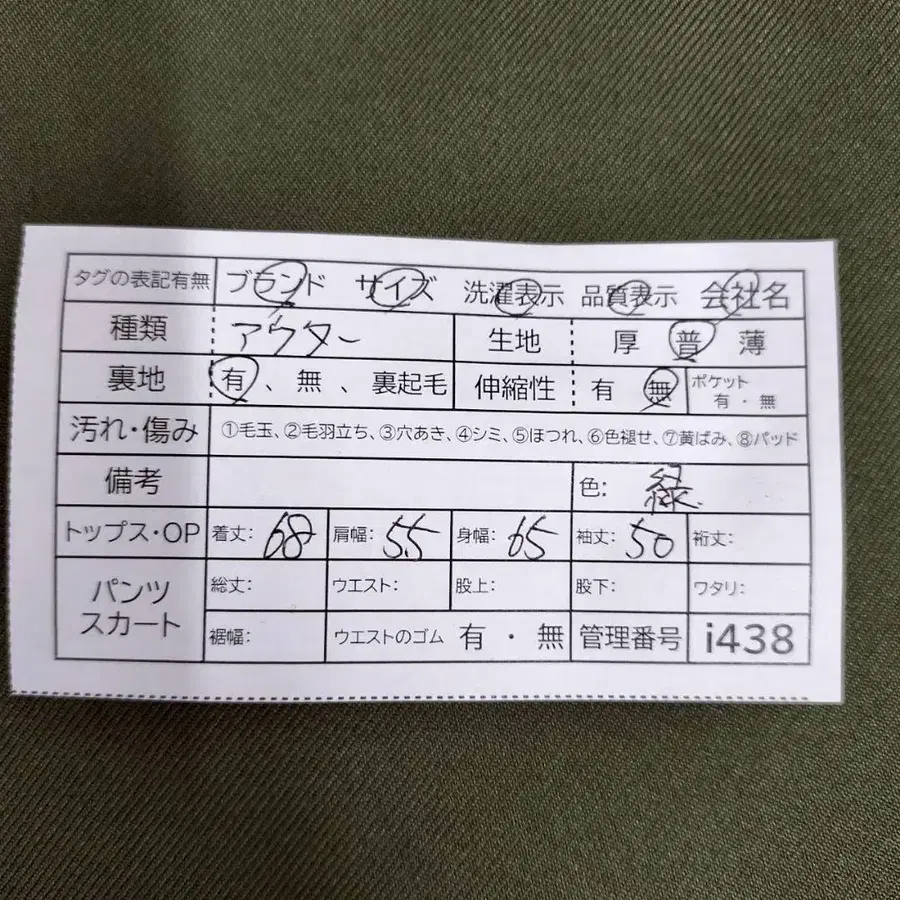 タグの表記有無 ブランド サイズ 洗濯表示 品質表示 会社名
種類 アウター 生地 厚 普 薄
裏地 有、無、裏起毛 伸縮性 有 無 ポケット 有・無
汚れ・傷み ①毛玉、②毛羽立ち、③穴あき、④シミ、⑤ほつれ、⑥色褪せ、⑦黄ばみ、⑧パッド
備考 色: 緑
トップス・OP 着丈: 68 肩幅: 55 身幅: 65 袖丈: 50 裄丈:
パンツ スカート 総丈: ウエスト: 股上: 股下: ワタリ:
裾幅: ウエストのゴム 有・無 管理番号 i438